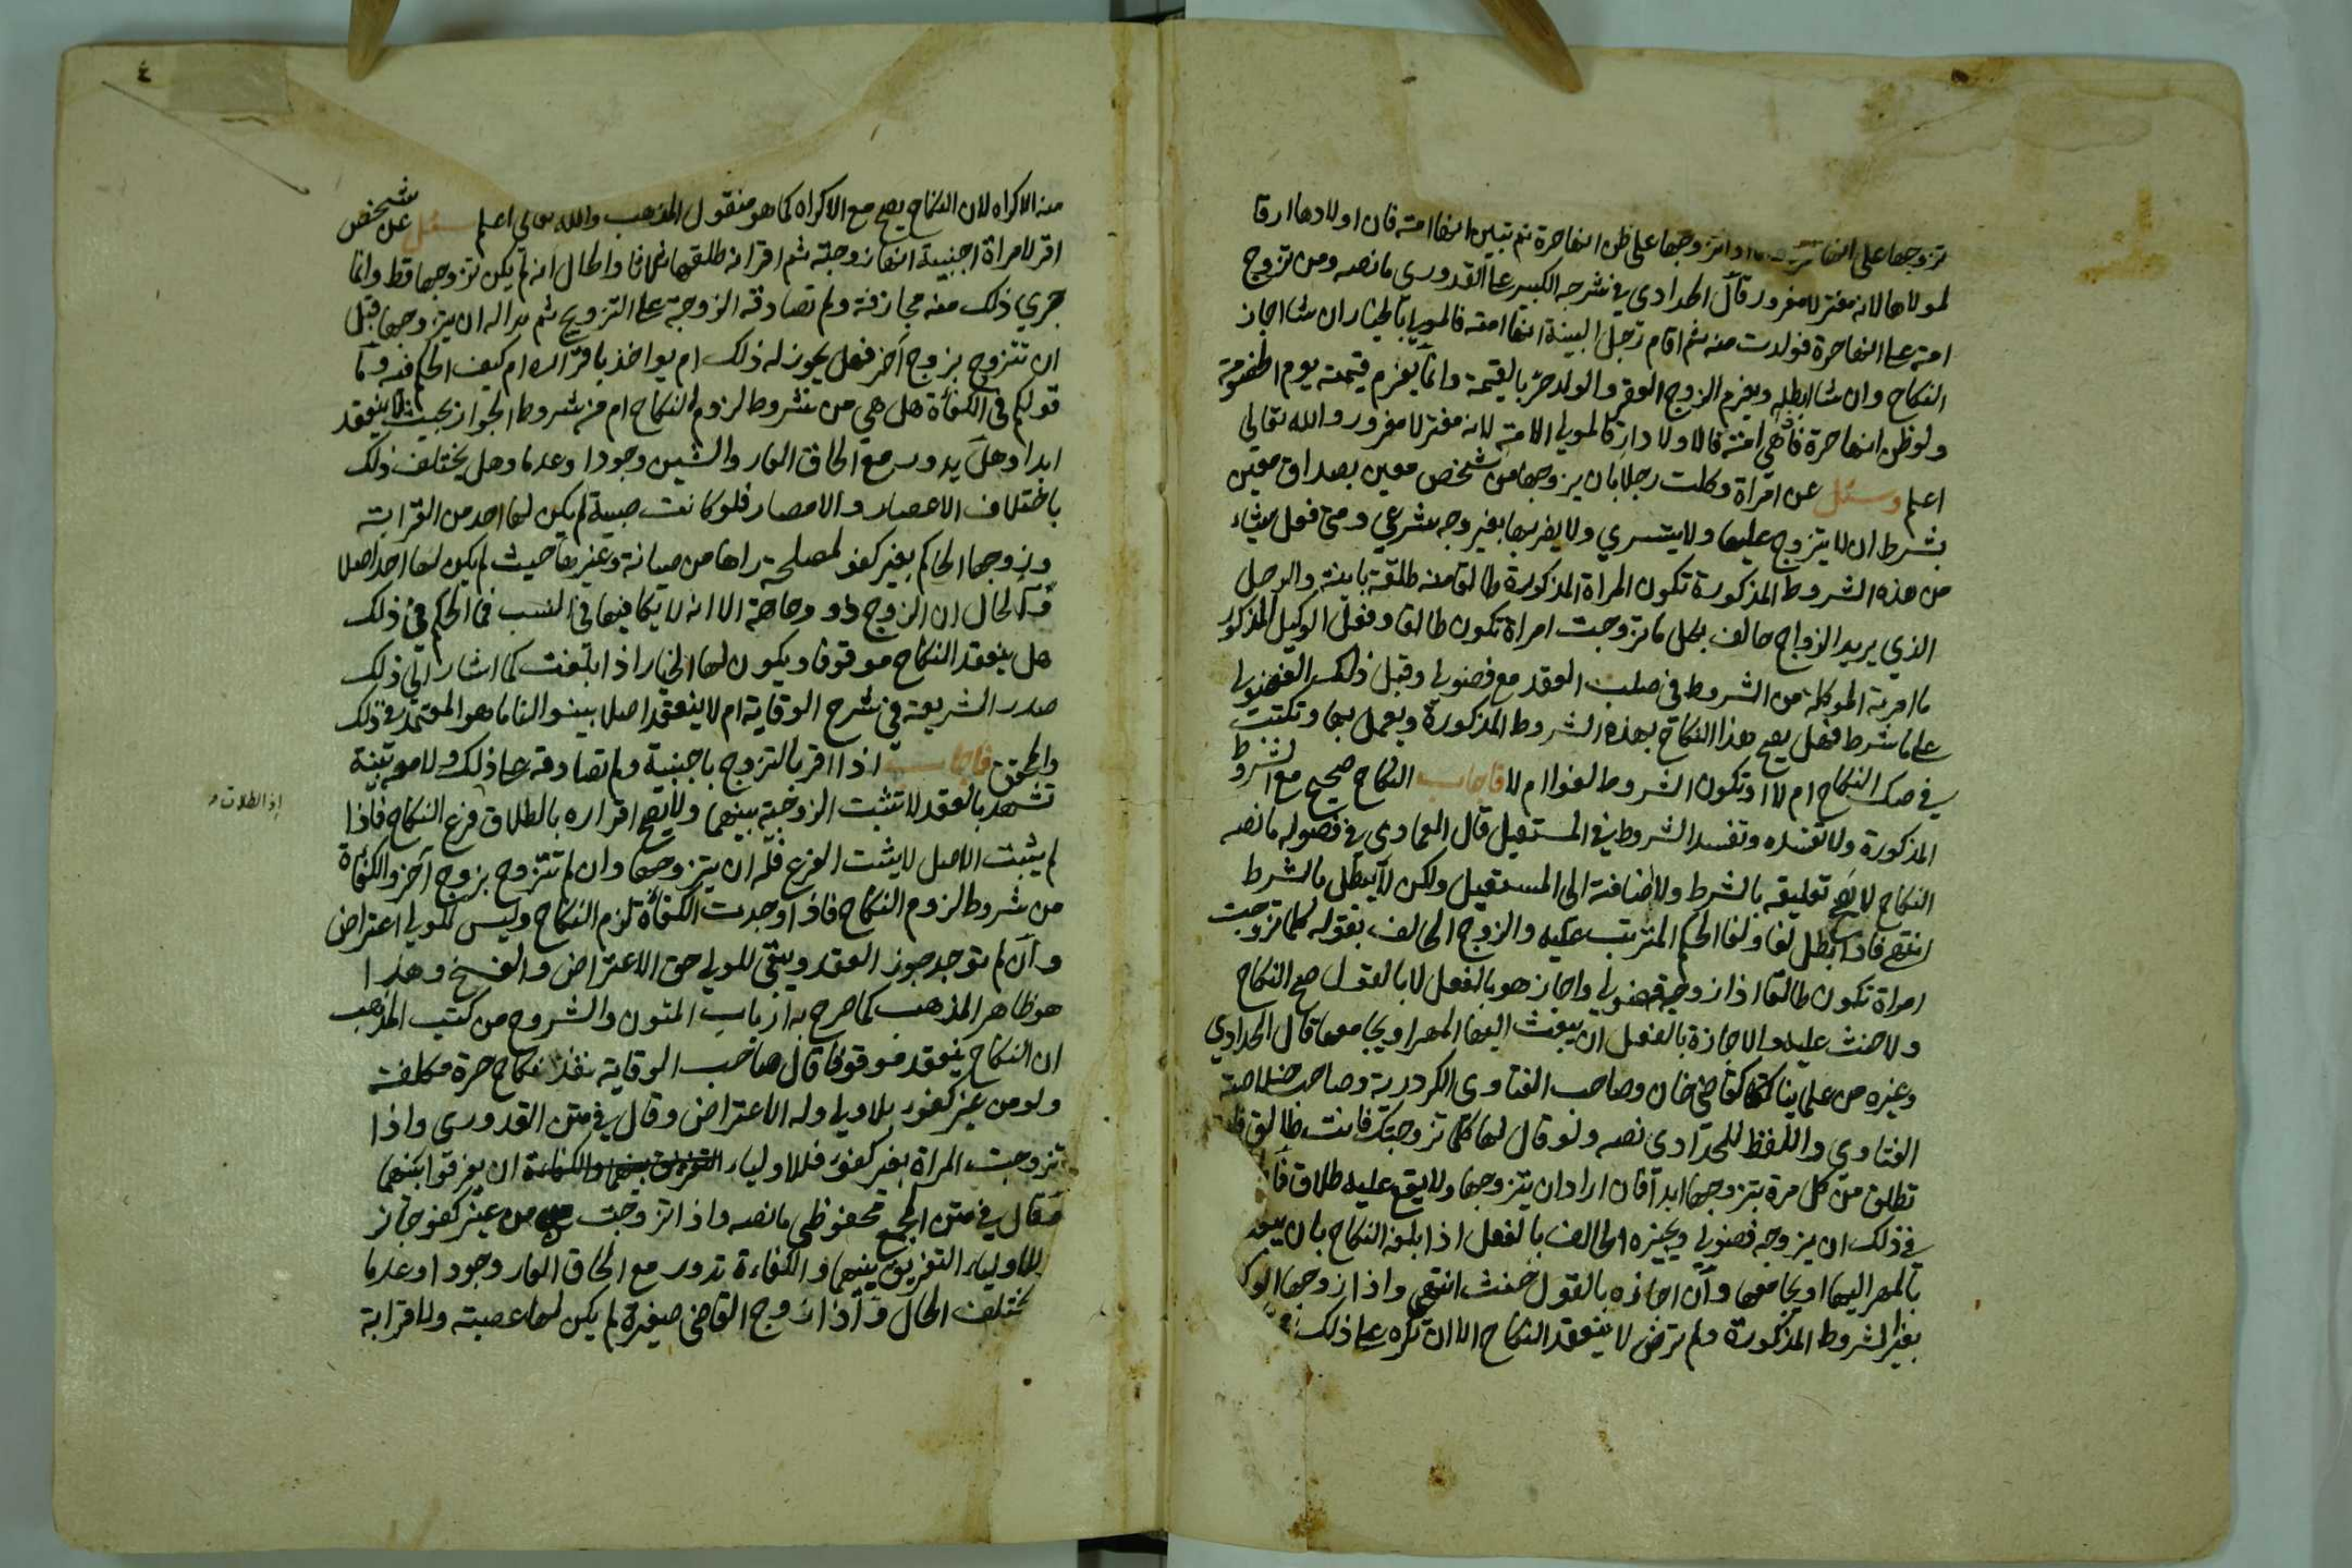 تزوجها على انها حرة اما اذا تزوجها على ظن انها حرة ثم تبين انها امة فان اولادها ارقا
لمولاها لانه مغتر لا مغرور قال الحدادي في شرحه الكبير على القدوري ما نصه ومن تزوج
امة على انها حرة فولدت منه ثم اقام رجل البينة انها امته فالمولي بالخيار ان شا اجاز
النكاح وان شا ابطله ويغرم الزوج العقر والولد حر بالقيمة وانما يغرم قيمته يوم الخصومة
ولو ظن انها حرة فاذا هي امة فالاولاد ارقا لمولي الامة لانه مغتر لا مغرور والله تعالي
اعلم وسئل عن امراة وكلت رجلا بان يزوجها من شخص معين بصداق معين
بشرط ان لا يتزوج عليها ولا يتسري ولا يضربها بغير وجه شرعي ومتى فعل شياء
من هذه الشروط المذكورة تكون المراة المذكورة طالقا منه طلقة باينة والرجل
الذي يريد الزواج حالف بكل ما تزوجت امراة تكون طالقا وفعل الوكيل المذكور
ما امر به الموكلة من الشروط في صلب العقد مع فضولي وقبل ذلك الفضولي
على ما شرط فهل يصح هذا النكاح بهذه الشروط المذكورة ويعمل بها وتكتب
في صك النكاح ام لا او تكون الشروط لغوا ام لا فاجاب النكاح صحيح مع الشروط
المذكورة ولا تفسده وتفسد الشروط في المستقبل قال العمادي في فصوله ما نصه
النكاح لا يصح تعليقه بالشرط ولا اضافته الى المستقبل ولكن لا يبطل بالشرط
انتهى فاذا بطل لغا ولغا الحكم المترتب عليه والزوج الحالف بقوله كلما تزوجت
امراة تكون طالقا اذا زوجه فضولي واجاز هو بالفعل لا بالقول صح النكاح
ولا حنث عليه والاجازة بالفعل ان يبعث اليها المهر او يجامعها قال الحدادي
وغيره من علماينا كقاضي خان وصاحب الفتاوي الكردرية وصاحب خلاصة
الفتاوي واللفظ للحدادي نصه ولو قال لها كلما تزوجتك فانت طالق
تطلق من كل مرة يتزوجها ابدا فان اراد ان يتزوجها ولا يقع عليه طلاق
في ذلك ان يزوجه فضولي ويجيزه الحالف بالفعل اذا بلغه النكاح بان
بالمهر اليها او يجامعها وان اجازه بالقول حنث انتهى واذا زوجها
بغير الشروط المذكورة ولم ترض لا ينعقد النكاح الا ان تكره على ذلك
٤
منه الاكراه لان النكاح يصح مع الاكراه كما هو منقول المذهب والله تعالي اعلم سئل عن شخص
اقر لامراة اجنبية انها زوجته ثم اقر انه طلقها ثلاثا والحال انه لم يكن تزوجها قط وانما
جري ذلك منه مجازفة ولم تصادقه الزوجة على التزويج ثم بدا له ان يتزوجها قبل
ان تتزوج بزوج آخر فهل يجوز له ذلك ام يواخذ باقراره ام كيف الحكم فيه وما
قولكم في الكفأة هل هي من شروط لزوم النكاح ام من شروط الجواز بحيث لا ينعقد
ابدا وهل يدور مع الحاق العار والشين وجودا وعدما وهل يختلف ذلك
باختلاف الاعصار والامصار فلو كانت صبية لم يكن لها احد من القرابة
وزوجها الحاكم بغير كفو لمصلحة راها من صيانة وغيرها حيث لم يكن لها احد اصلا
والحال ان الزوج ذو وجاهة الا انه لا يكافيها في النسب فما الحكم في ذلك
هل ينعقد النكاح موقوفا ويكون لها الخيار اذا بلغت كما اشار الى ذلك
صدر الشريعة في شرح الوقاية ام لا ينعقد اصلا بينوا لنا ما هو المعتمد في ذلك
والمحقق فاجاب اذا اقر بالتزوج باجنبية ولم تصادقه على ذلك ولا معه بينة
تشهد بالعقد لا تثبت الزوجية بينهما ولا يصح اقراره بالطلاق فرع النكاح فاذا
اذ الطلاق
لم يثبت الاصل لا يثبت الفرع فله ان يتزوجها وان لم تتزوج بزوج آخر والكفأة
من شروط لزوم النكاح فاذا وجدت الكفأة لزم النكاح وليس للولي اعتراض
وان لم توجد جوز العقد ويبقى للولي حق الاعتراض والفسخ وهذا
هو ظاهر المذهب كما صرح به ارباب المتون والشروح من كتب المذهب
ان النكاح ينعقد موقوفا قال صاحب الوقاية نفذ نكاح حرة مكلفة
ولو من غير كفو بلا ولي وله الاعتراض وقال في متن القدوري واذا
تزوجت المراة بغير كفو فللاولياء ان يفرقوا بينهما
وقال في متن المجمع محفوظي ما نصه واذا تزوجت من غير كفو جاز
للاولياء التفريق بينهما والكفاءة تدور مع الحاق العار وجودا وعدما
يختلف الحال واذا زوج القاضي صغيرة لم يكن لها عصبة ولا قرابة